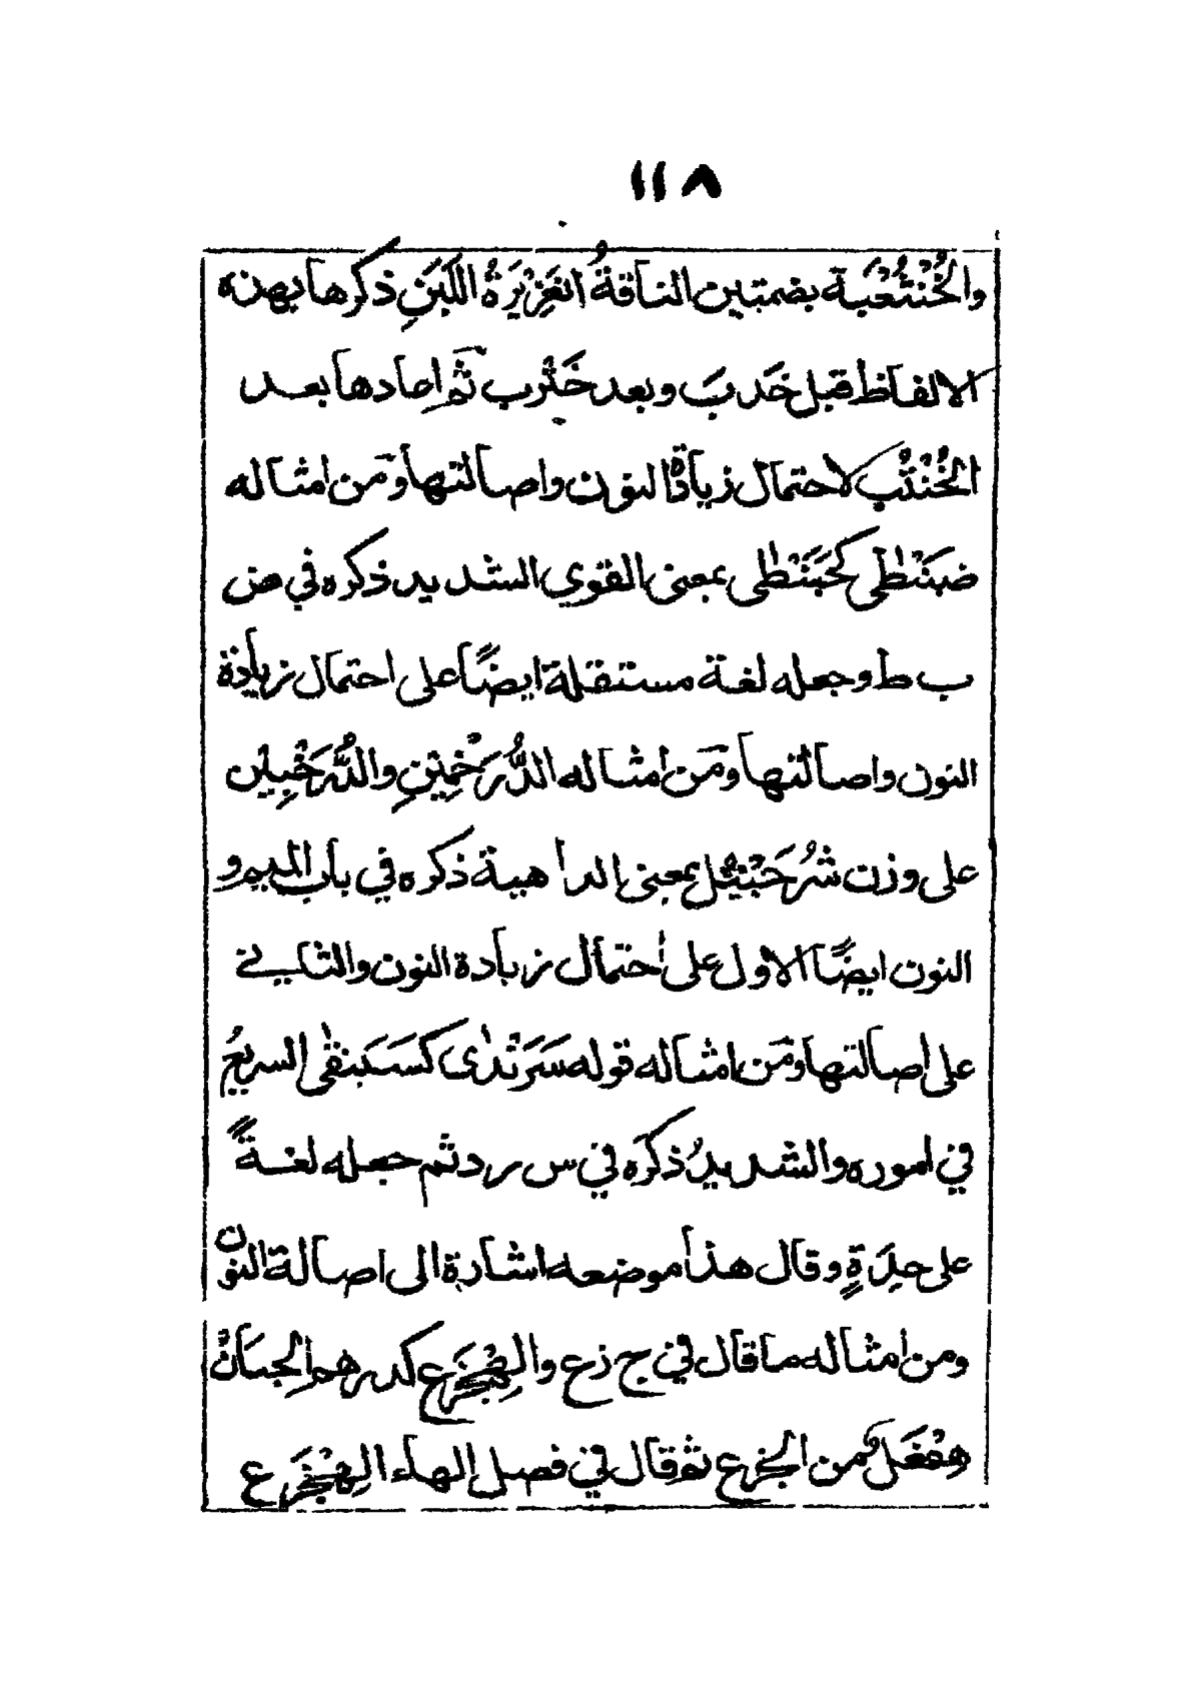 ١١٨
والخُنْثُعْبَة بضمتين الناقةُ الغَزِيْرَةُ اللَّبَنِ ذكرها بهذه
الالفاظ قبل خَدبَ وبعد خَثْرب ثم اعادها بعد
الخُنْثُب لاحتمال زيادة النون واصالتها ومن امثاله
ضبَنْطٰى كَحَبَنْطٰى بمعنى القوي الشديد ذكره في ض
ب ط وجعله لغة مستقلة ايضًا على احتمال زيادة
النون واصالتها ومن امثاله الدُّرَخْمِيْنِ والدُّرَخْبِيْن
على وزن شُرَحْبِيْل بمعنى الداهية ذكره في باب الميم و
النون ايضًا الاول على احتمال زيادة النون والثاني
على اصالتها ومن امثاله قوله سَرَنْدٰى كسَبَنْقٰى السريعُ
في اموره والشديدُ ذكره في س ر د ثم جعله لغةً
على حِدَةٍ وقال هذا موضعه اشارة الى اصالة النون
ومن امثاله ما قال في ج ز ع والهِجْزَع كدرهم الجبانُ
هِفْعَل من الجزع ثم قال في فصل الهاء الهِجْزَع